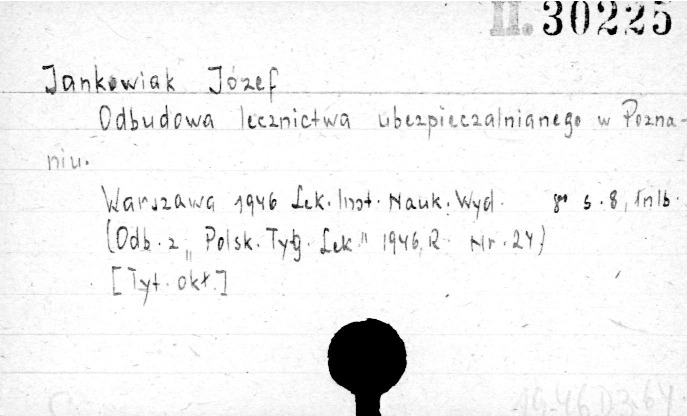 II. 30225
Jankowiak Józef
Odbudowa lecznictwa ubezpieczalnianego w Pozna-
niu.
Warszawa 1946 Lek. Inst. Nauk. Wyd. 8° s. 8, 1 nlb.
(Odb. z „Polsk. Tyg. Lek" 1946, R. Nr. 24)
[Tyt. okł.]